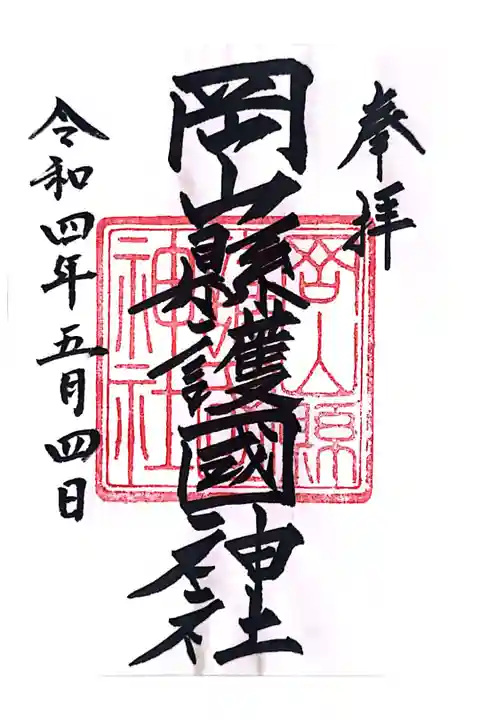 奉拝
岡山縣護國神社
岡山県護國神社
令和四年五月四日